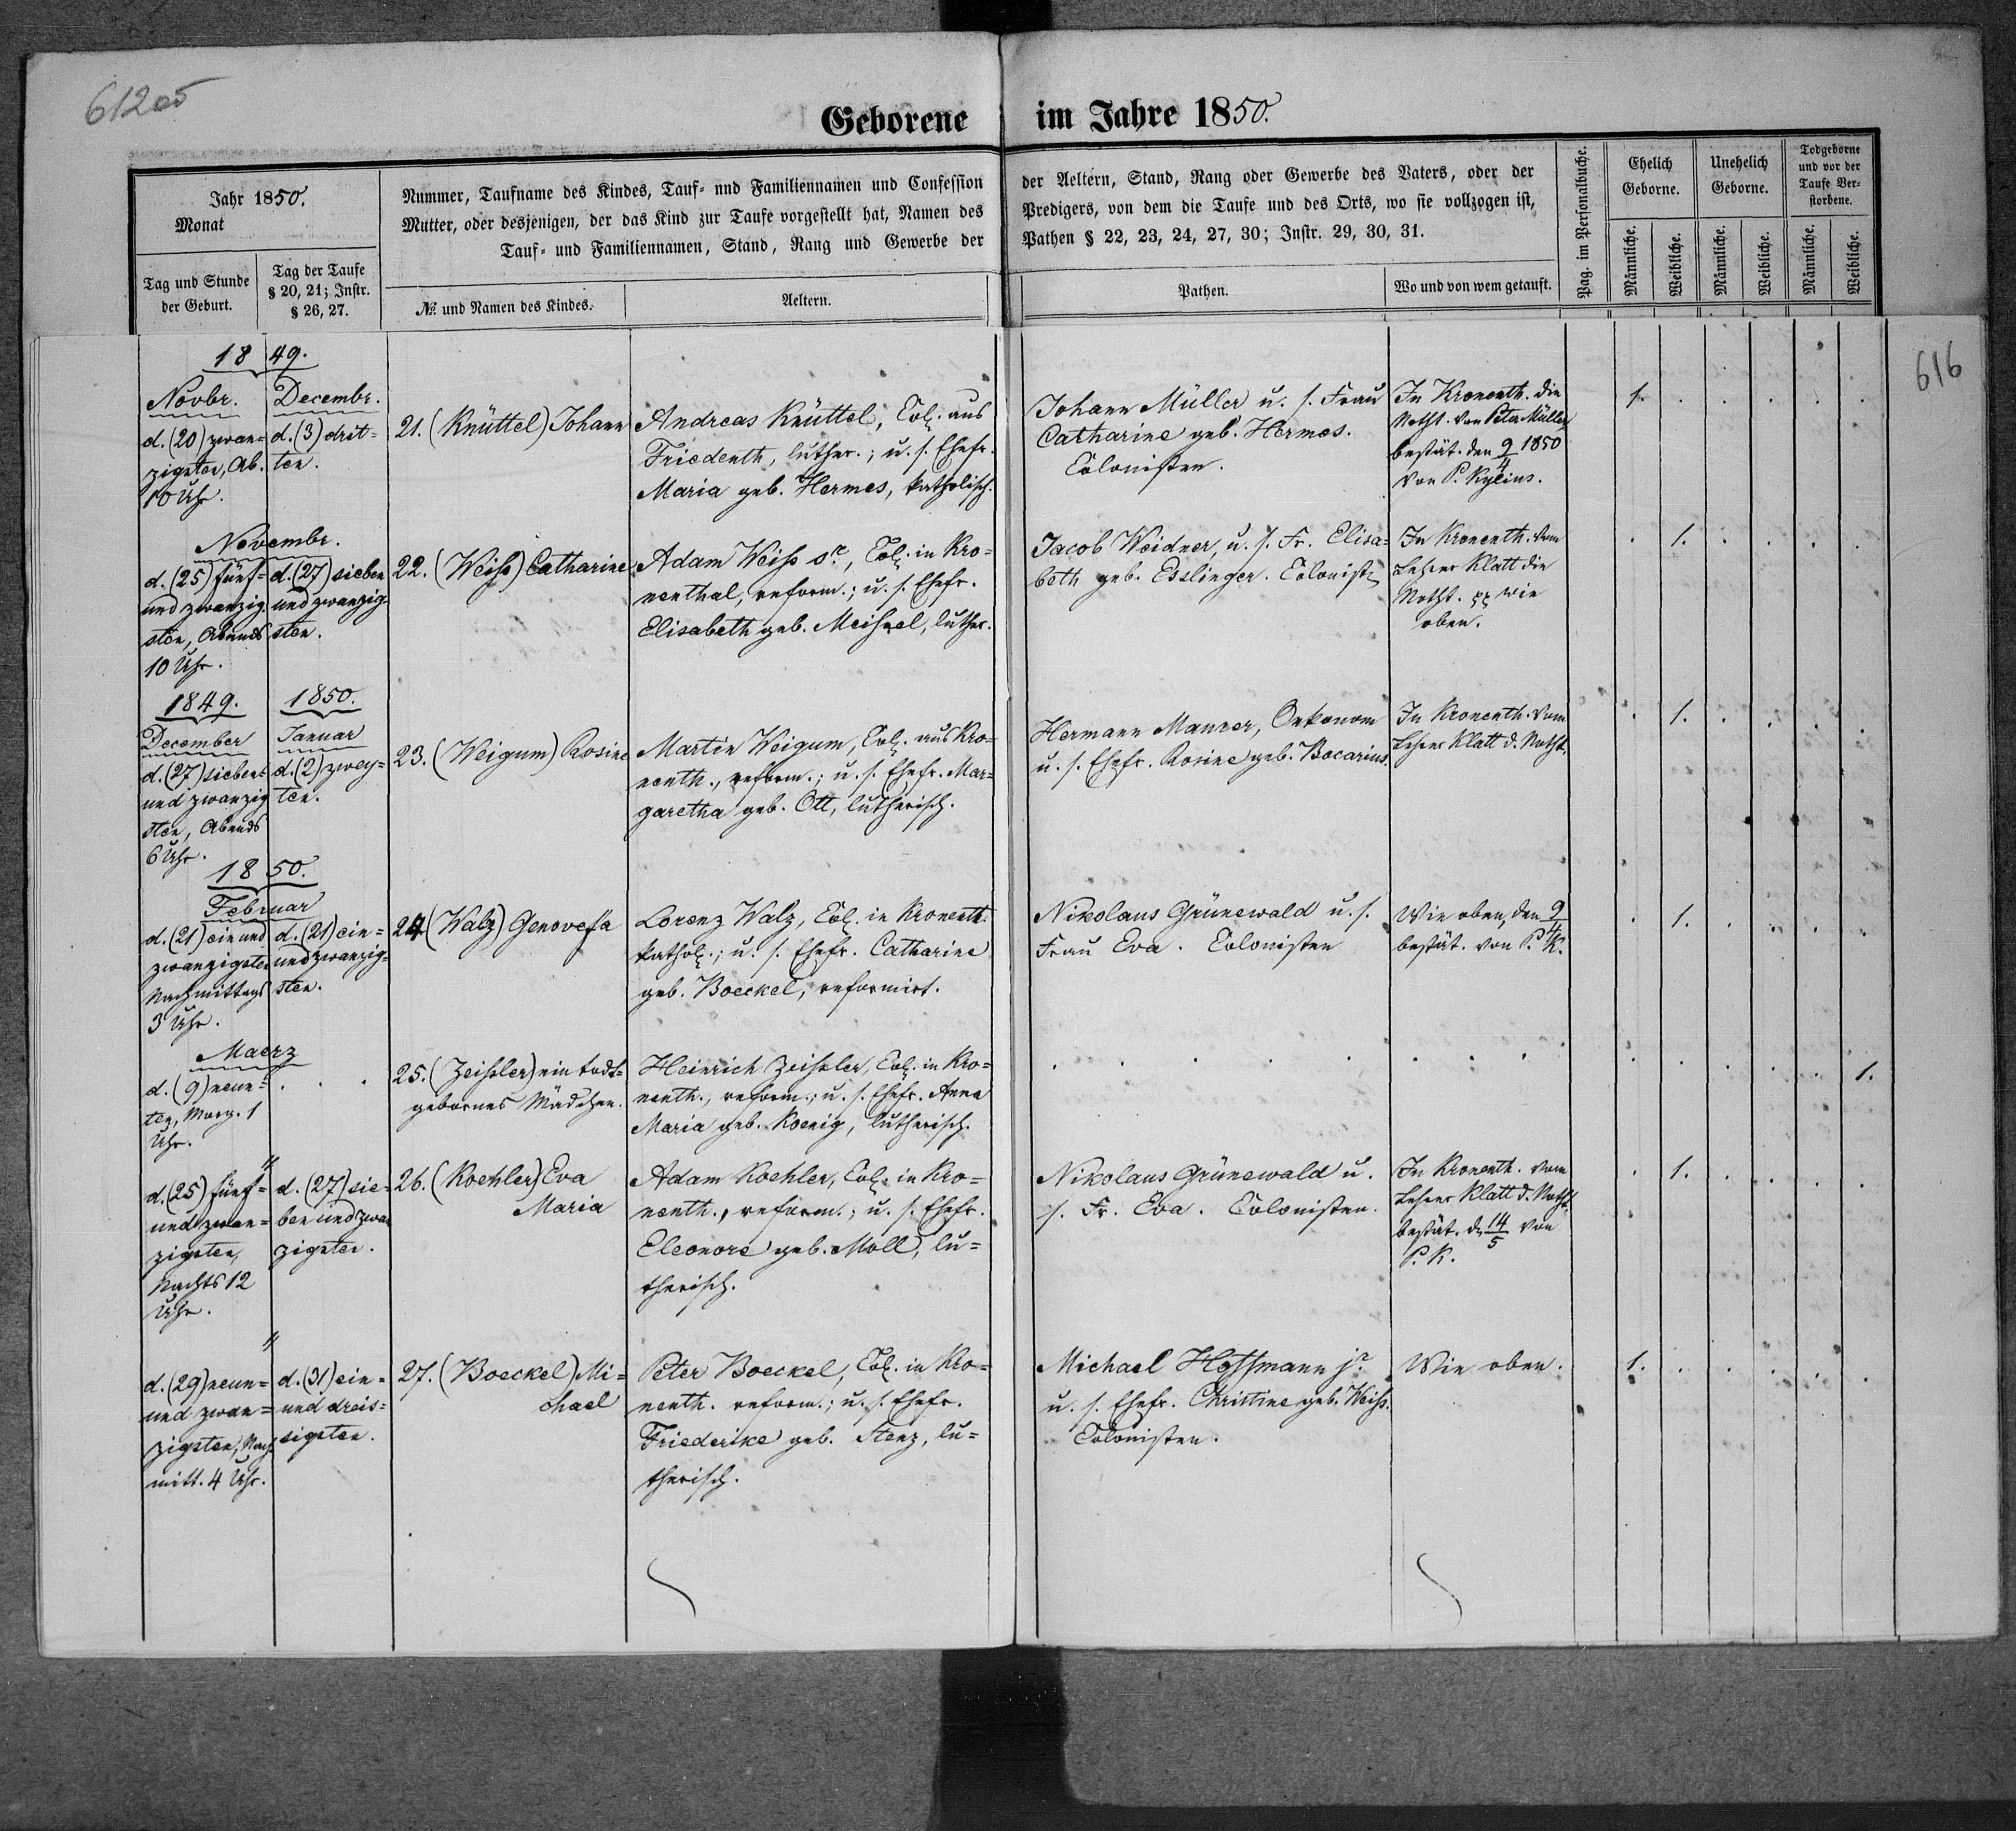 61205
Geborene im Jahre 1850.
Jahr 1850.
Monat
Tag und Stunde
der Geburt.
Tag der Taufe
§ 20, 21; Instr.
§ 26, 27.
Nummer, Taufname des Kindes, Tauf- und Familiennamen und Confession
Mutter, oder desjenigen, der das Kind zur Taufe vorgestellt hat, Namen des
Tauf- und Familiennamen, Stand, Rang und Gewerbe der
No. und Namen des Kindes.
Aeltern.
der Aeltern, Stand, Rang oder Gewerbe des Vaters, oder der
Predigers, von dem die Taufe und des Orts, wo sie vollzogen ist,
Pathen § 22, 23, 24, 27, 30; Instr. 29, 30, 31.
Pathen.
Wo und von wem getauft.
Pag. im Personalbuche.
Ehelich
Geborne.
Unehelich
Geborne.
Todgeborne
und vor der
Taufe Ver-
storbene.
Männliche.
Weibliche.
Männliche.
Weibliche.
Männliche.
Weibliche.
616
1849.
Novbr.
d. (20) zwan=
zigsten, Ab.
10 Uhr.
Decembr.
d. (3) drit=
ten.
21. (Knüttel) Johann
Andreas Knüttel, Col. aus
Friedenth, luther.; u. s. Ehefr.
Maria geb. Hermes, katholisch.
Johann Müller u. s. Frau
Catharine geb. Hermes.
Colonisten.
In Kronenth. die
Notht. von Peter Müller
bestät. den 9/4 1850
von P. Kylius.
1.
Novembr.
d. (25) fünf=
und zwanzig
sten, Abends
10 Uhr.
d. (27) sieben
und zwanzig=
sten.
22. (Weiß) Catharine
Adam Weiß sr., Col. in Kro=
nenthal, reform.; u. s. Ehefr.
Elisabeth geb. Meißel, luther.
Jacob Weidner, u. s. Fr. Elisa=
beth geb. Esslinger. Colonist.
In Kronenth. vom
Lehrer Klatt die
Notht. wie
oben.
1.
1849.
December
d. (27) sieben
und zwanzig
sten, Abends
6 Uhr.
1850.
Januar
d. (2) zwey=
ten.
23. (Weigum) Rosine
Martin Weigum, Col. aus Kro=
nenth., reform.; u. s. Ehefr. Mar=
garetha geb. Ott, lutherisch.
Hermann Maurer, Oekonom
u. s. Ehefr. Rosine geb. Bocarius.
In Kronenth. vom
Lehrer Klatt d. Notht.
1.
1850.
Februar
d. (21) ein und
zwanzigsten
Nachmittags
3 Uhr.
d. (21) ein=
und zwanzig=
sten.
24 (Walz) Genovefa
Lorenz Walz, Col. in Kronenth.
kathol.; u. s. Ehefr. Catharine
geb. Boeckel, reformirt.
Nikolaus Grünewald u. s.
Frau Eva. Colonisten
Wie oben, den 9/4
bestät. von P. K.
1.
Maerz
d. (9) neun=
ten, Morg. 1
Uhr.
25. (Zeißler) ein todt=
gebornes Mädchen.
Heinrich Zeißler, Col. in Kro=
nenth., reform.; u. s. Ehefr. Anna
Maria geb. Koenig, lutherisch.
1.
"
d. (25) fünf=
und zwan=
zigsten,
Nachts 12
Uhr.
d. (27) sie=
ben und zwan
zigsten.
26. (Koehler) Eva
Maria
Adam Koehler, Col. in Kro=
nenth., reform.; u. s. Ehefr.
Eleonore geb. Moll, lu=
therisch.
Nikolaus Grünewald u.
s. Fr. Eva. Colonisten.
In Kronenth. vom
Lehrer Klatt d. Notht.
bestät. d. 14/5 von
P. K.
1.
"
d. (29) neun=
und zwan=
zigsten, Nach
mitt. 4 Uhr.
d. (31) ein=
und dreis=
sigsten.
27. (Boeckel) Mi=
chael
Peter Boeckel, Col. in Kro=
nenth. reform.; u. s. Ehefr.
Friederike geb. Stenz, lu=
therisch.
Michael Hoffmann jr.
u. s. Ehefr. Christine geb. Weiß.
Colonisten.
Wie oben.
1.